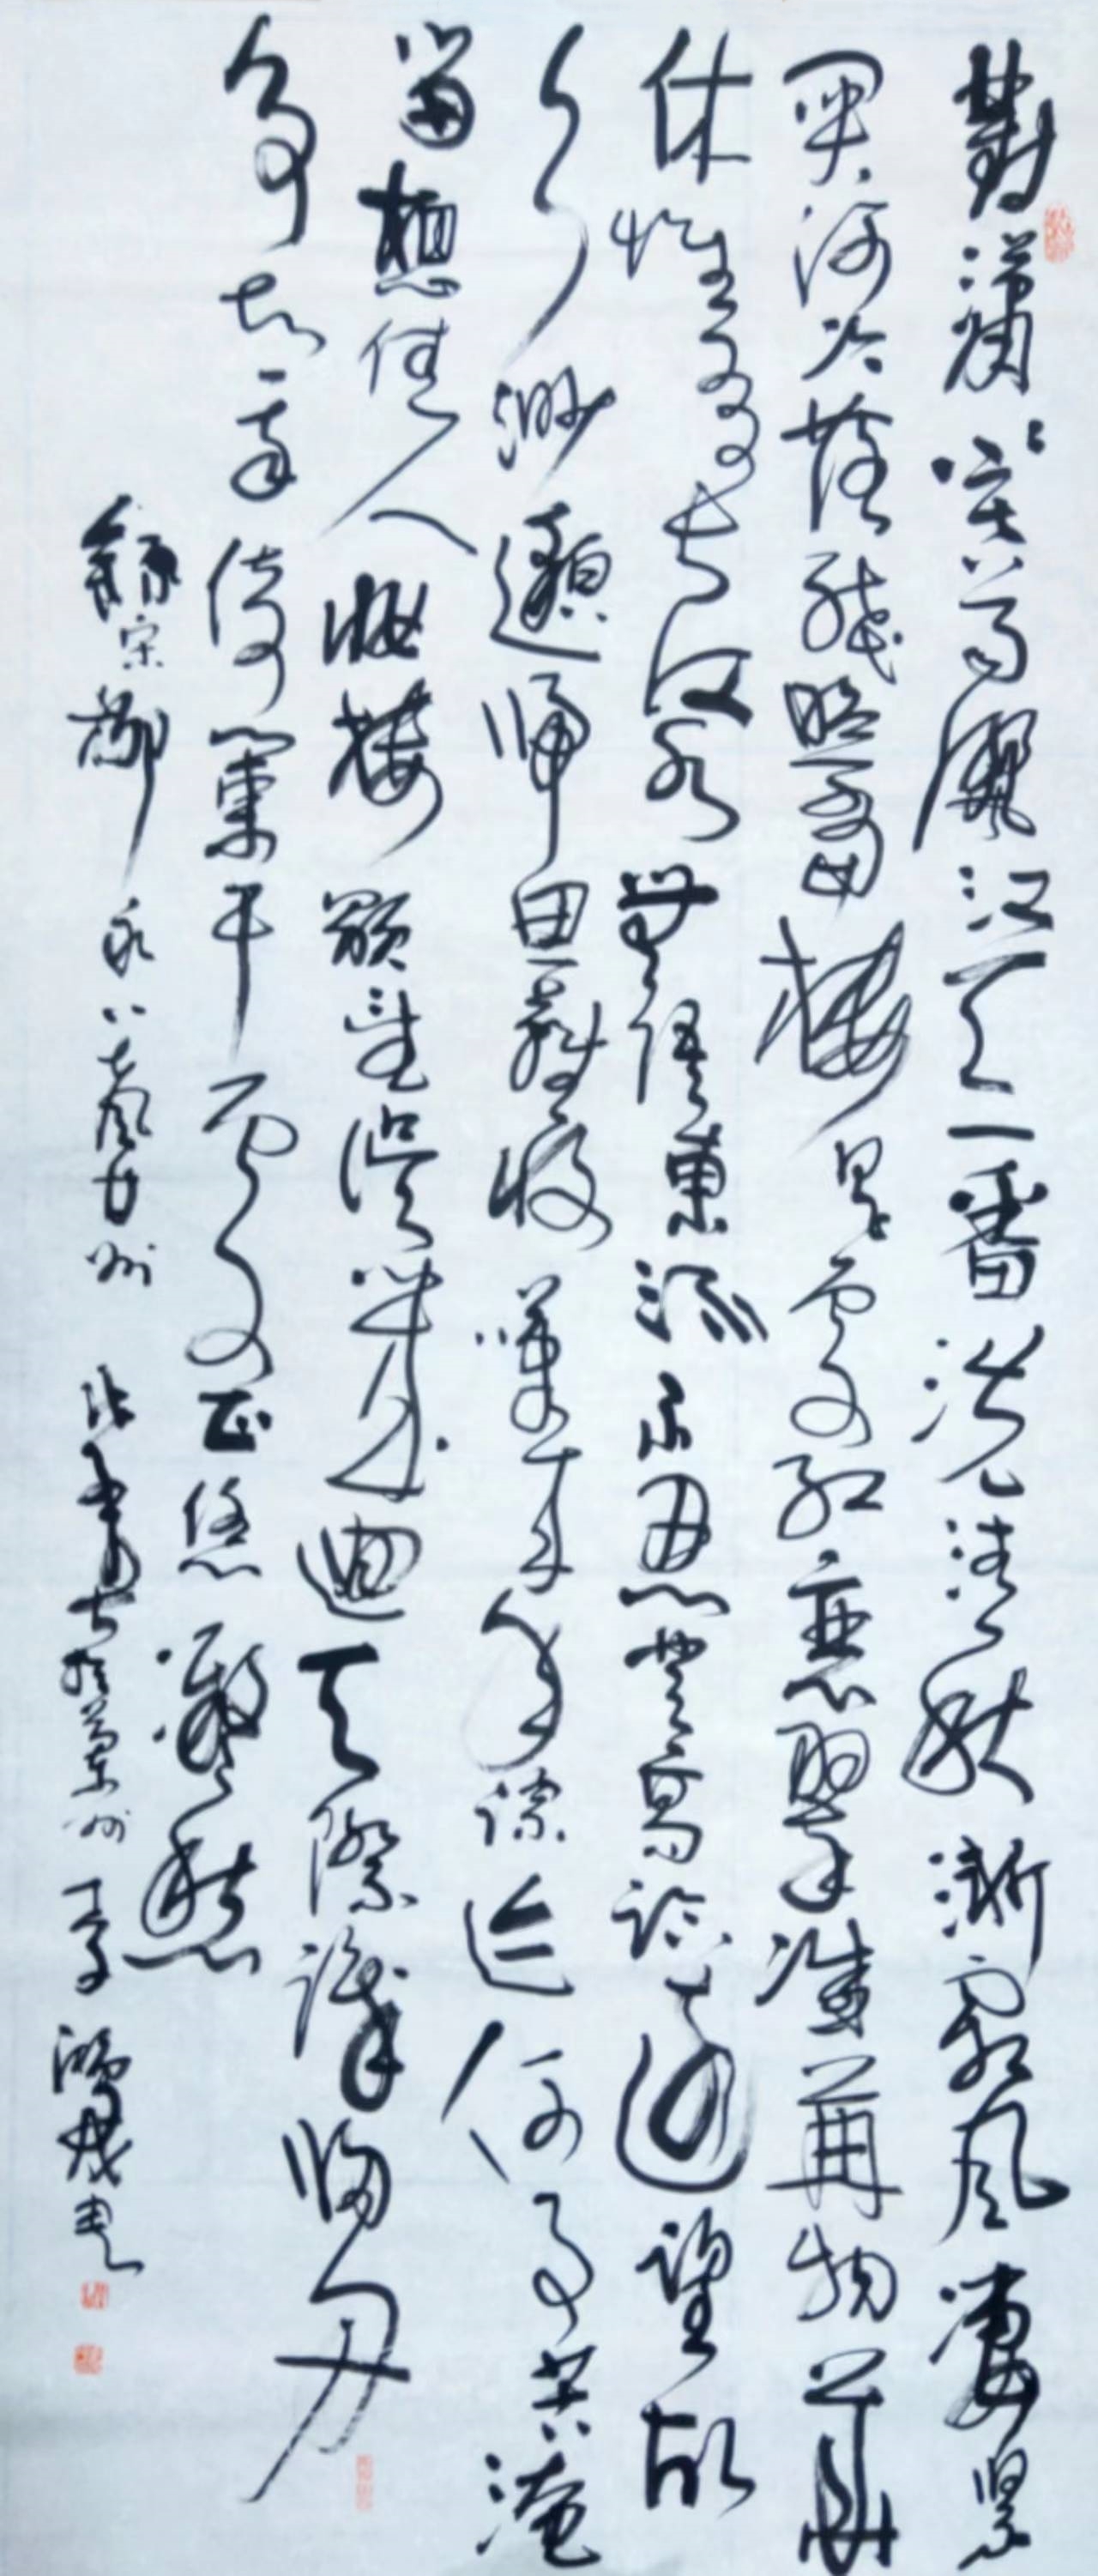 對瀟瀟暮雨灑江天一番洗清秋漸霜風凄緊
關河冷落殘照當樓是處紅衰翠減苒苒物華
休惟有長江水無語東流不忍登高臨遠望故
鄉渺邈歸思難收嘆年來蹤迹何事苦淹
留想佳人妝樓顒望誤幾回天際識歸舟
爭知我倚闌干處正恁凝愁
錄宋柳永八聲甘州 李鴻